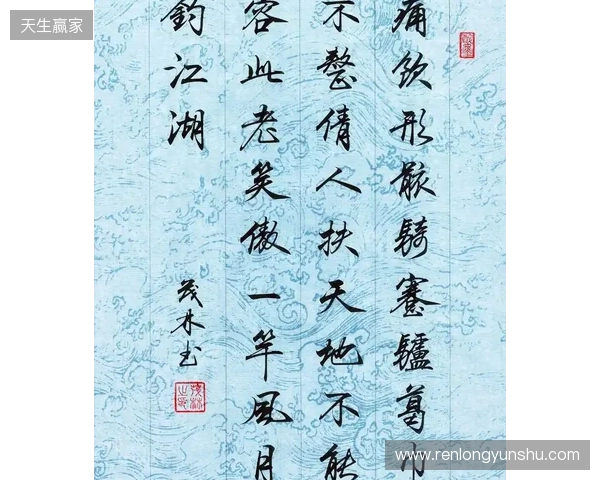 天生赢家
痛飲形骸騎蹇驢葛巾
不整倩人扶天地不能
容此老笑傲一竿風月
釣江湖
茂林书
www.renlongyunshu.com